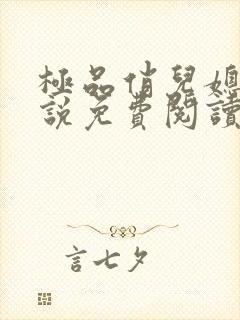 極品俏兒媳
說免費閱讀
言七夕